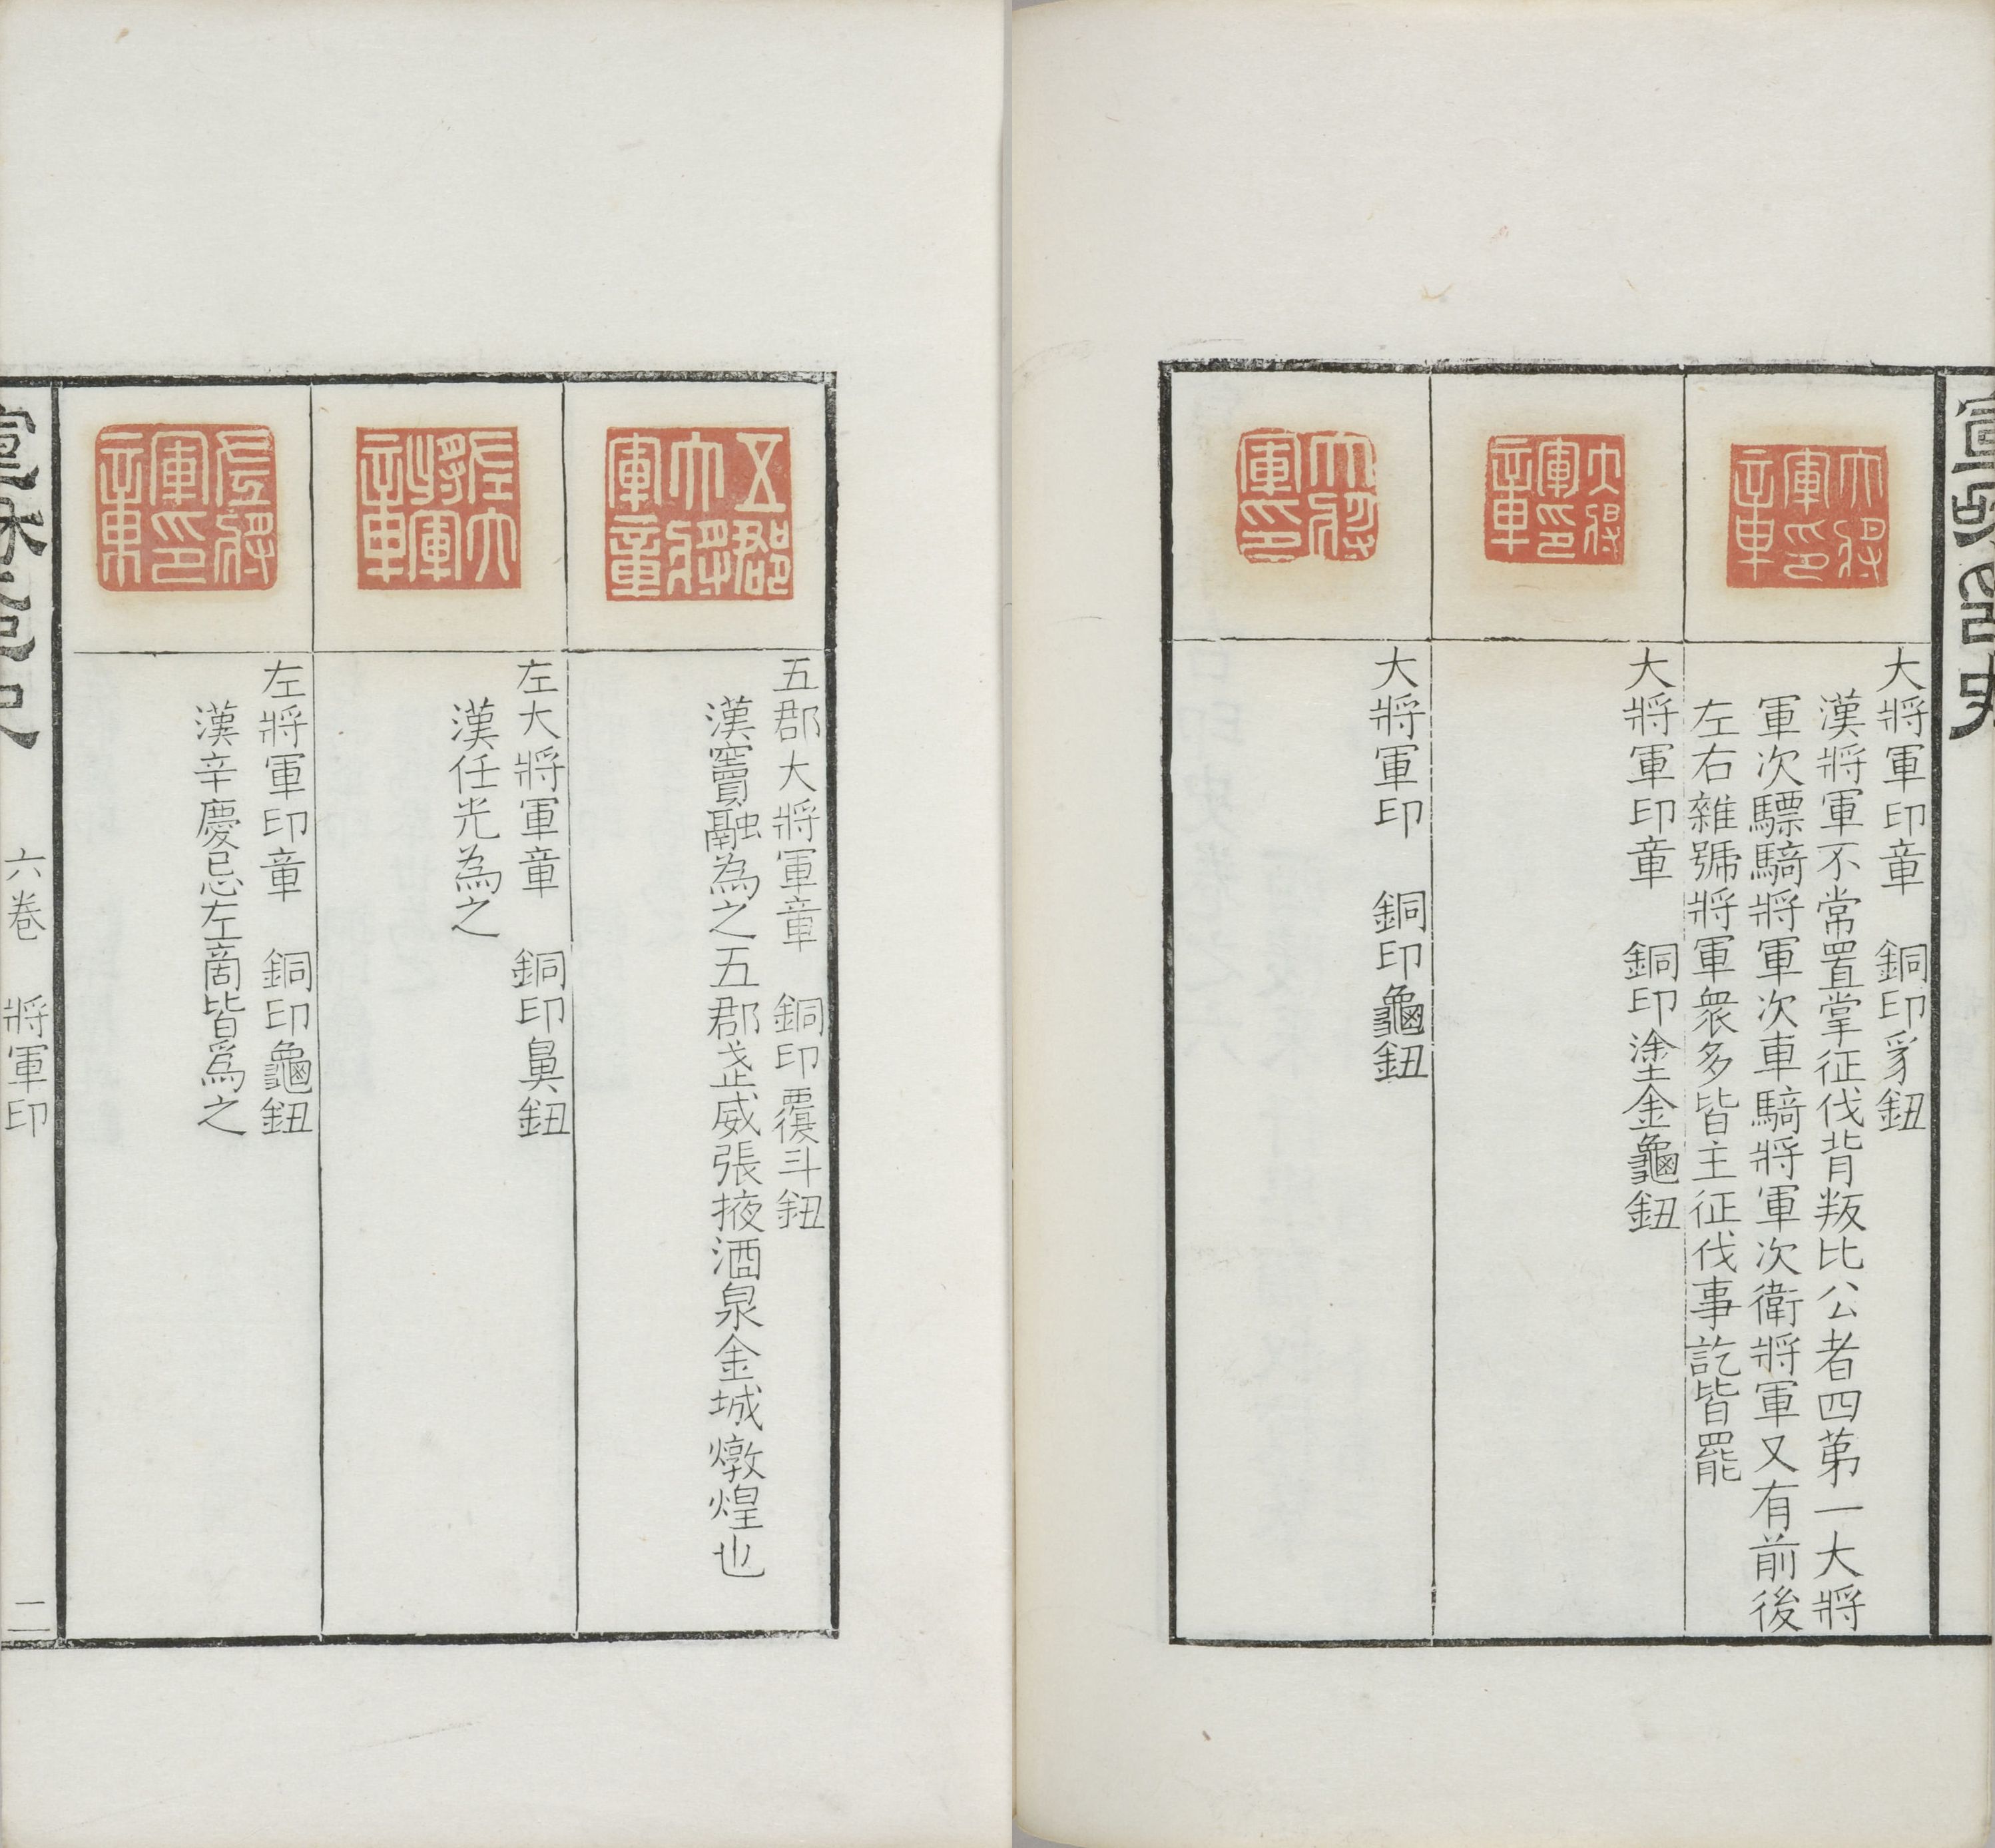 大將軍印章　銅印豸鈕
漢將軍不常置掌征伐背叛比公者四第一大將
軍次驃騎將軍次車騎將軍次衛將軍又有前後
左右雜號將軍衆多皆主征伐事訖皆罷
大將軍印章
大將軍印章　銅印塗金龜鈕
大將軍印章
大將軍印　銅印龜鈕
大將軍印
五郡大將軍章　銅印覆斗鈕
漢竇融為之五郡武威張掖酒泉金城燉煌也
五郡大將軍章
左大將軍章　銅印鼻鈕
漢任光為之
左大將軍章
左將軍印章　銅印龜鈕
漢辛慶忌左咸皆爲之
左將軍印章
六卷　將軍印
二